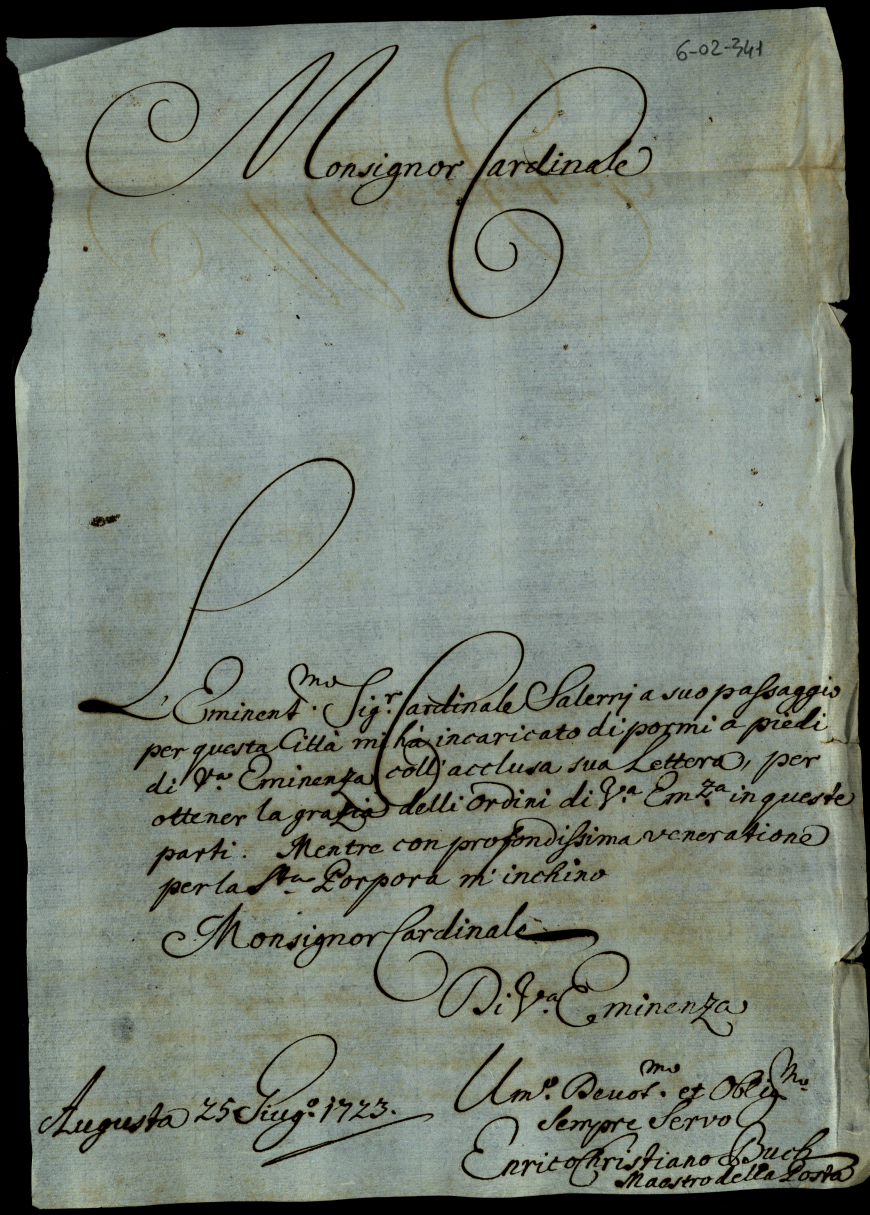 6-02-341
Monsignor Cardinale
L'Eminent.mo Sig.r Cardinale Salernj a suo passaggio
per questa Città mi hà incaricato di pormi a piedi
di V.a Eminenza coll'acclusa sua Lettera, per
ottener la grazia delli ordini di V.a Em.za in queste
parti. Mentre con profondissima veneratione
per la S.ta Porpora m'inchino
Monsignor Cardinale
Di V.a Eminenza
Augusta 25 Giug.o 1723.
Um.o Devot.mo et Oblig.mo
Sempre Servo
Enrico Christiano Buch
Maestro della Posta